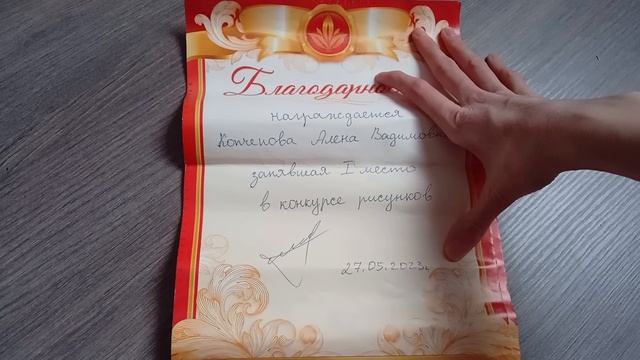 Благодарно
награждается
Алена Вадимовна
занявшая I место
в конкурсе рисунков
27.05.2023г